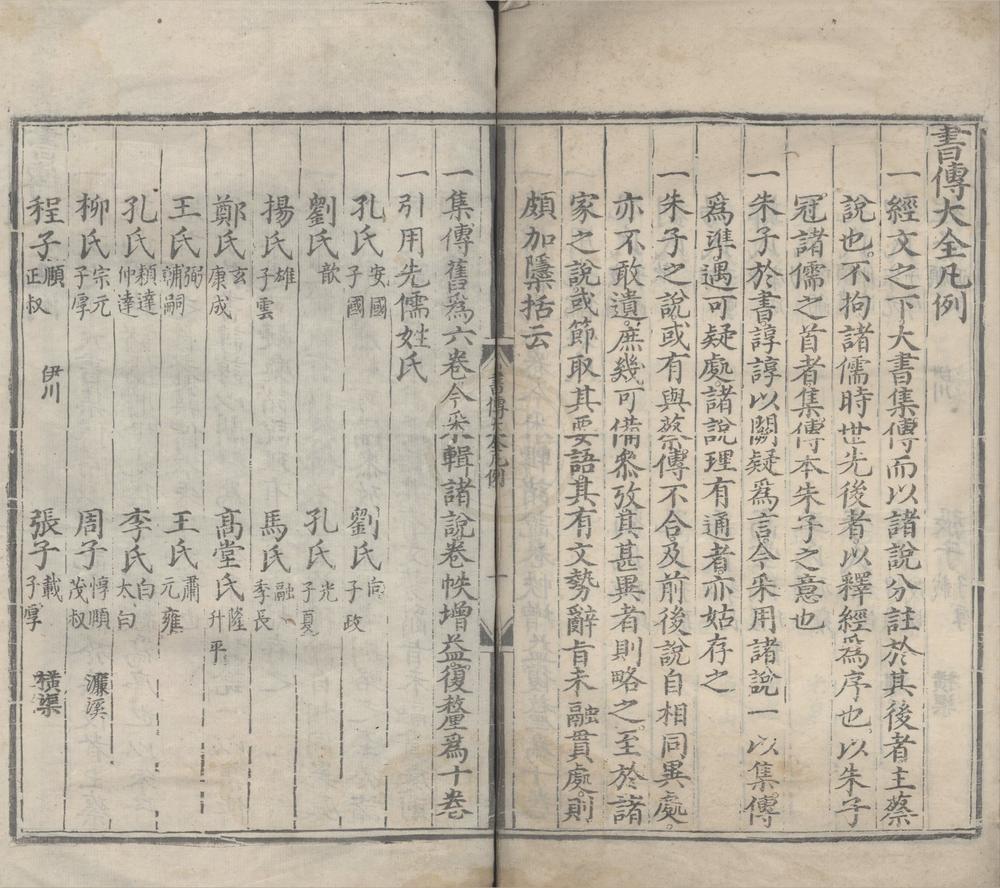 書傳大全凡例
一經文之下大書集傳而以諸說分註於其後者主蔡
說也不拘諸儒時世先後者以釋經爲序也以朱子
冠諸儒之首者集傳本朱子之意也
一朱子於書諄諄以闕疑爲言今采用諸說一以集傳
爲準遇可疑處諸說理有通者亦姑存之
一朱子之說或有與蔡傳不合及前後說自相同異處
亦不敢遺庶幾可備叅攷其甚異者則略之至於諸
家之說或節取其要語其有文勢辭旨未融貫處則
頗加檃括云
書傳大全凡例 一
一集傳舊爲六卷今采輯諸說卷帙增益復釐爲十卷
一引用先儒姓氏
孔氏安國子國 劉氏向子政
劉氏歆 孔氏光子夏
揚氏雄子雲 馬氏融季長
鄭氏玄康成 高堂氏隆升平
王氏弼輔嗣 王氏肅元雍
孔氏穎達仲達 李氏白太白
柳氏宗元子厚 周子惇頤茂叔 濂溪
程子頤正叔 伊川 張子載子厚 橫渠